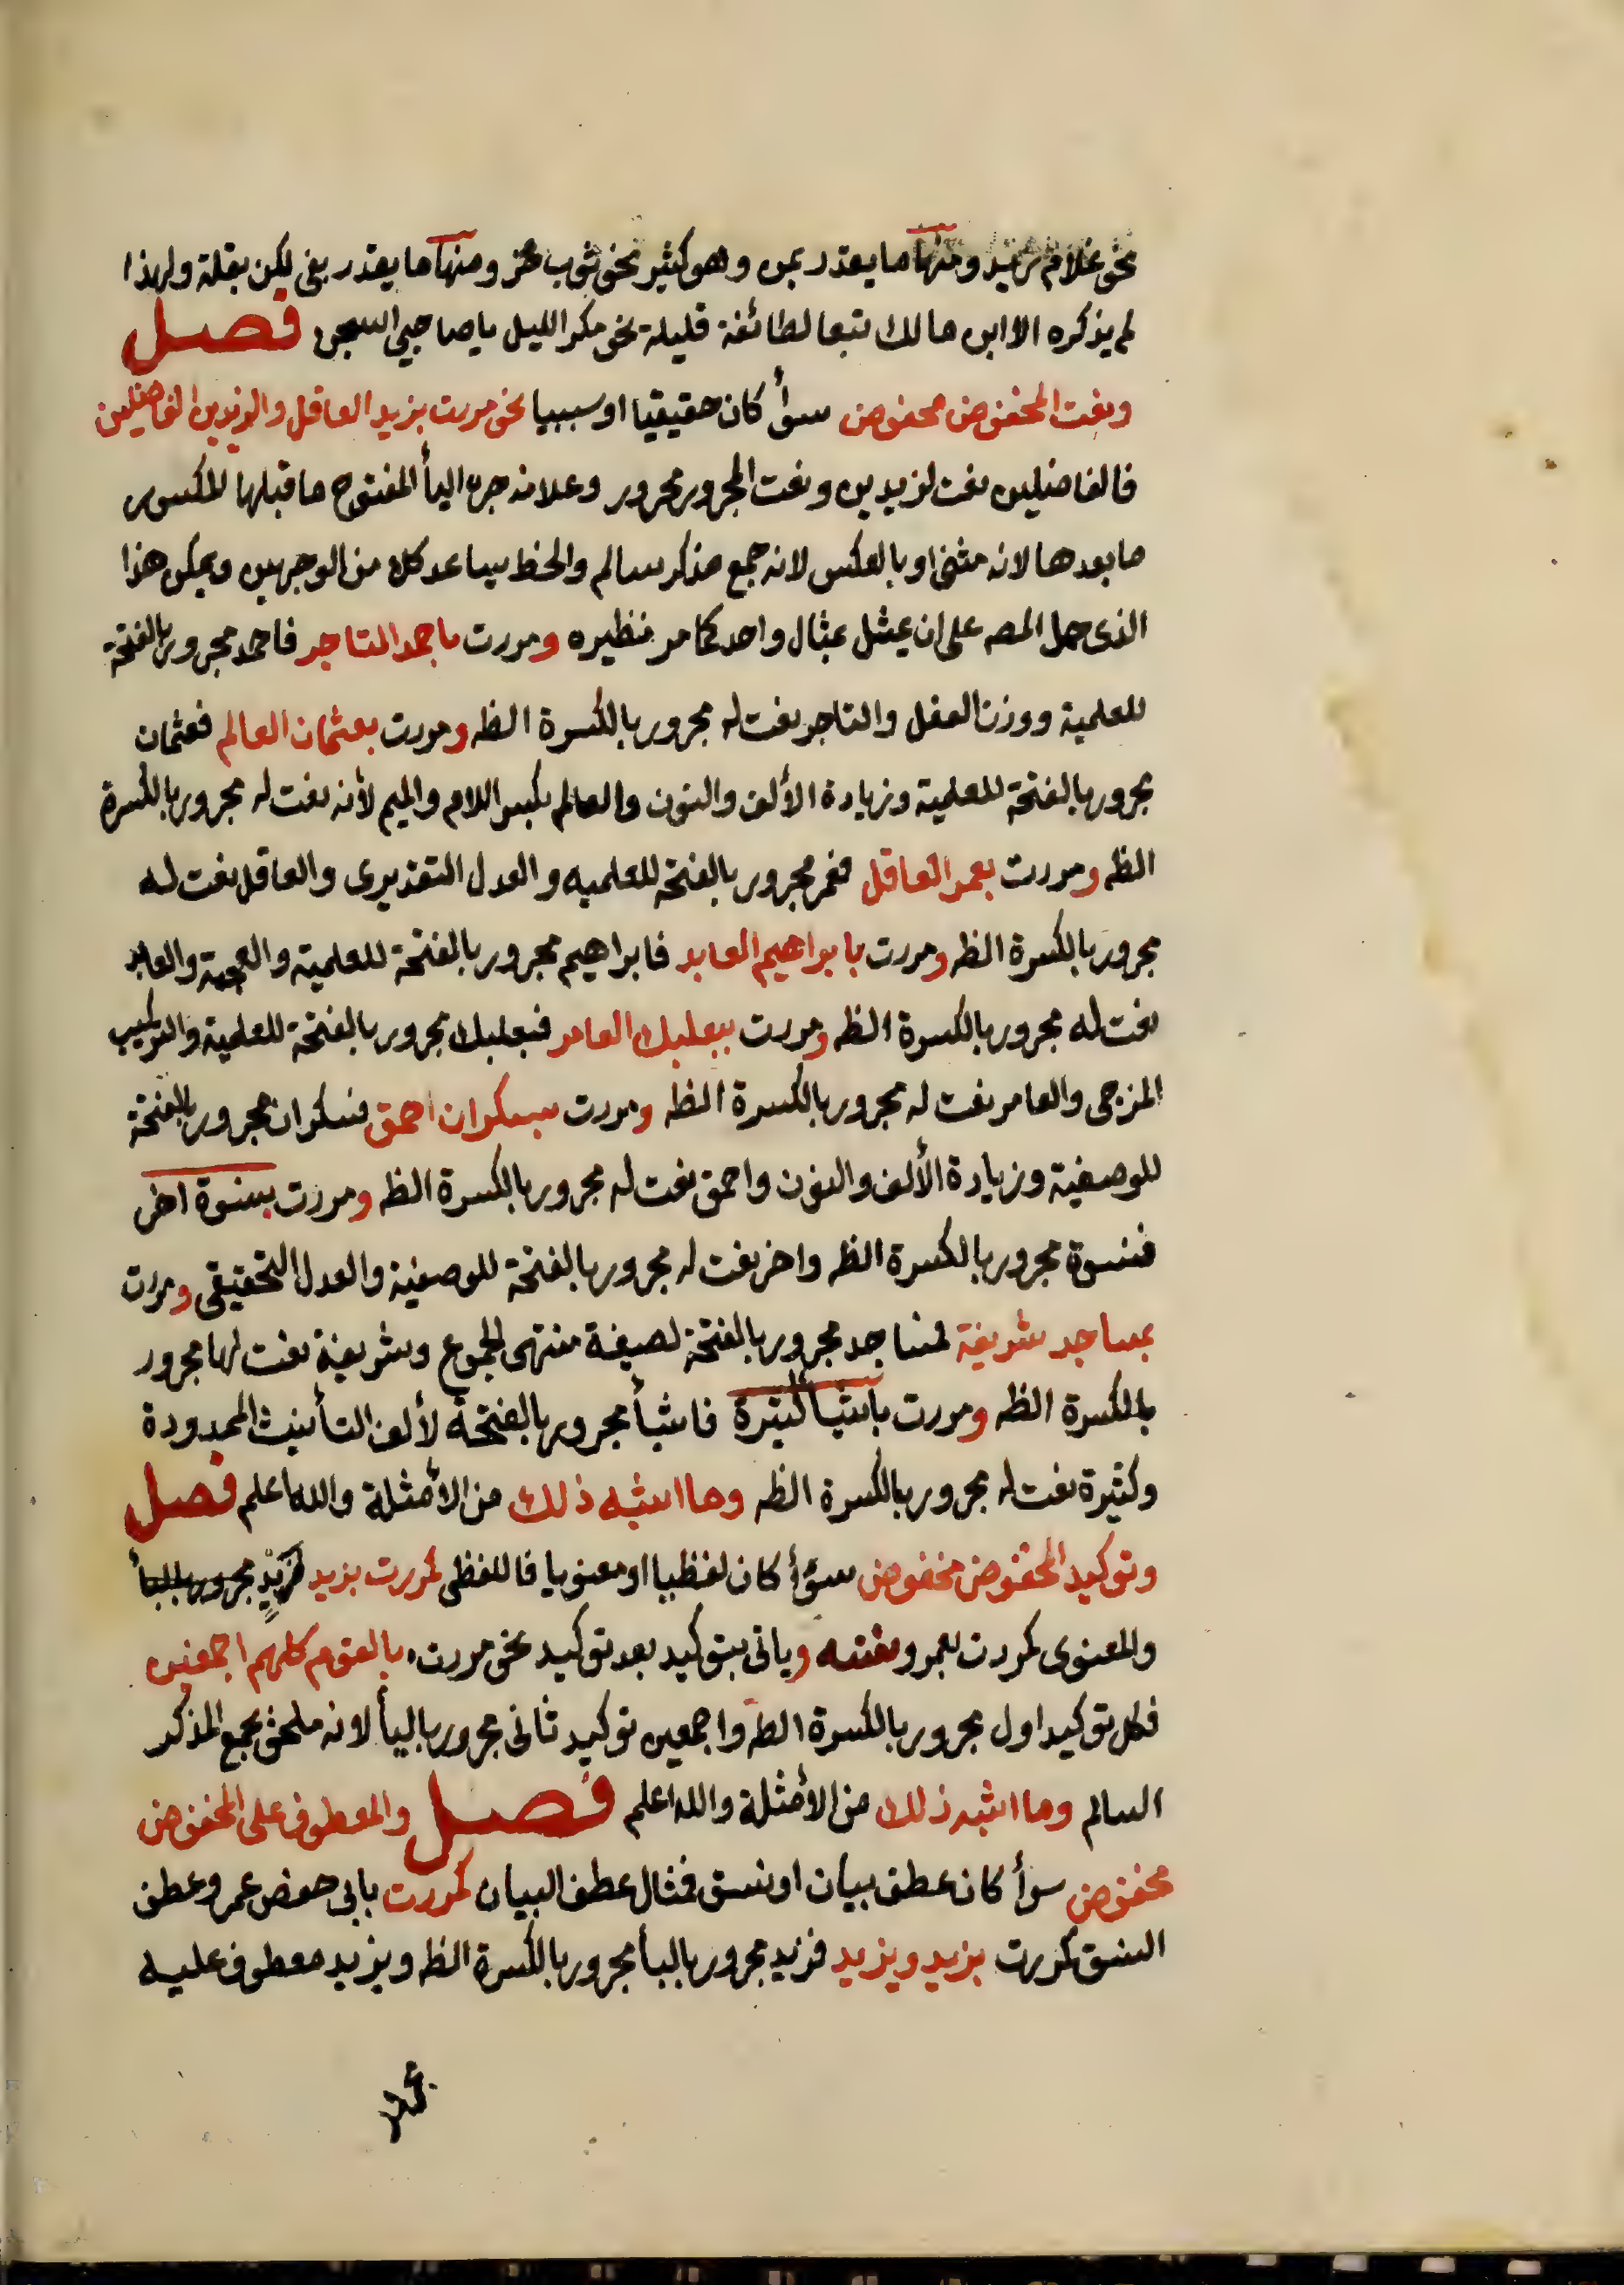 نحو غلام زيد ومنها ما يقدر بمن وهو كثير نحو ثوب خز ومنها ما يقدر بفى لكن بقلة ولهذا
لم يذكره الا ابن مالك تبعا لطائفة قليلة نحو مكر الليل يا صاحبي السجن فصل
ونعت المخفوض مخفوض سوأ كان حقيقيا او سببيا نحو مررت بزيد العاقل والزيدين الفاضلين
فالفاضلين نعت لزيدين ونعت المجرور مجرور وعلامة جره اليأ المفتوح ما قبلها المكسور
ما بعدها لانه مثنى او بالعكس لانه جمع مذكر سالم والخط يساعد كلا من الوجهين ويمكن هذا
الذى حمل المصـ على ان يمثل بمثال واحد كما مر نظيره ومررت باحمد التاجر فاحمد مجرور بالفتحة
للعلمية ووزن الفعل والتاجر نعت له مجرور بالكسرة الظه ومررت بعثمان العالم فعثمان
مجرور بالفتحة للعلمية وزيادة الألف والنون والعالم بكسر اللام والميم لأنه نعت له مجرور بالكسرة
الظه ومررت بعمر العاقل فعمر مجرور بالفتحة للعلميه والعدل التقديرى والعاقل نعت له
مجرور بالكسرة الظه ومررت بابراهيم العابد فابراهيم مجرور بالفتحة للعلمية والعجمة والعابد
نعت له مجرور بالكسرة الظه ومررت ببعلبك العامر فبعلبك مجرور بالفتحة للعلمية والتركيب
المزجى والعامر نعت له مجرور بالكسرة الظه ومررت بسكران احمق فسكران مجرور بالفتحة
للوصفية وزيادة الألف والنون واحمق نعت له مجرور بالكسرة الظه ومررت بنسوة اخر
فنسوة مجرور بالكسرة الظه واخر نعت له مجرور بالفتحة للوصفية والعدل التحقيقى ومررت
بمساجد شريفة فمساجد مجرور بالفتحة لصيغة منتهى الجموع وشريفة نعت لها مجرور
بالكسرة الظه ومررت باشيا كثيرة فاشيأ مجرور بالفتحة لألف التأنيث الممدودة
وكثيرة نعت له مجرور بالكسرة الظه وما اشبه ذلك من الأمثلة والله اعلم فصل
وتوكيد المخفوض مخفوض سوأ كان لفظيا او معنويا فاللفظى كمررت بزيد فزيد مجرور بالبأ
والمعنوى كمررت بعمرو نفسه وياتى بتوكيد بعد توكيد نحو مررت بالقوم كلهم اجمعين
فكل توكيد اول مجرور بالكسرة الظه واجمعين توكيد ثانى مجرور باليأ لانه ملحق بجمع المذكر
السالم وما اشبه ذلك من الأمثلة والله اعلم فصل والمعطوف على المخفوض
مخفوض سوأ كان عطف بيان او نسق فمثال عطف البيان كمررت بابى حفص عمر وعطف
النسق كمررت بزيد ويزيد فزيد مجرور بالبأ مجرور بالكسرة الظه ويزيد معطوف عليه